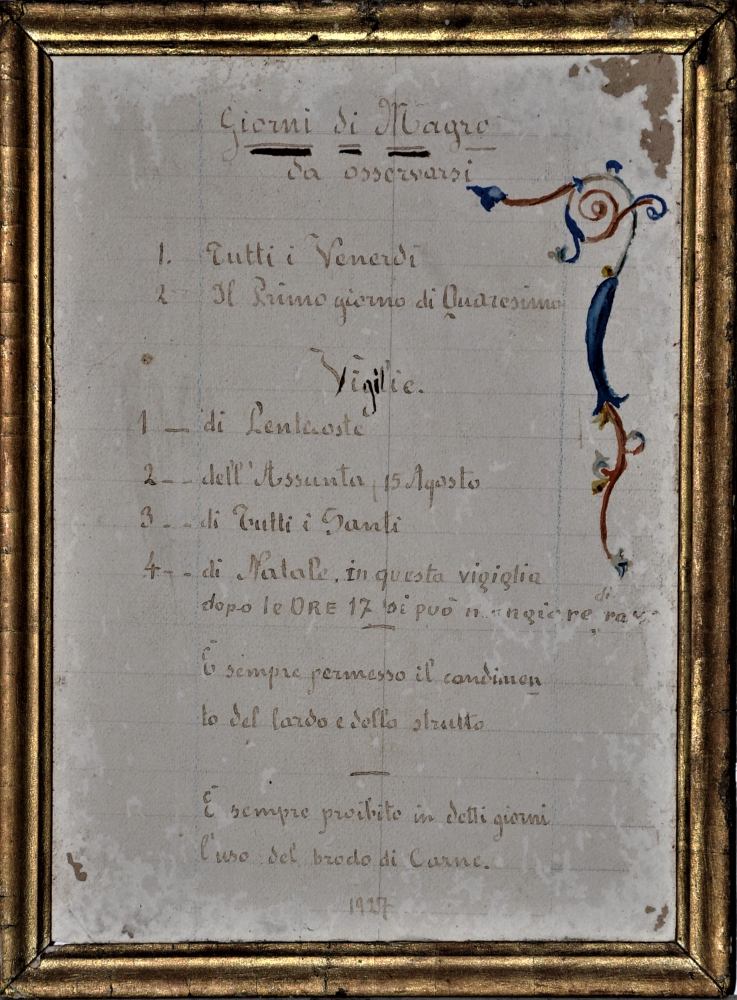 Giorni di Magro
da osservarsi
1. Tutti i Venerdì
2 Il Primo giorno di Quaresima
Vigilie.
1 — di Pentecoste
2 - - dell'Assunta, 15 Agosto
3 - - di Tutti i Santi
4 - - di Natale, in questa vigiglia
dopo le ORE 17 si può mangiare di
È sempre permesso il condimen
to del lardo e dello strutto
È sempre proibito in detti giorni
l'uso del brodo di Carne.
1927